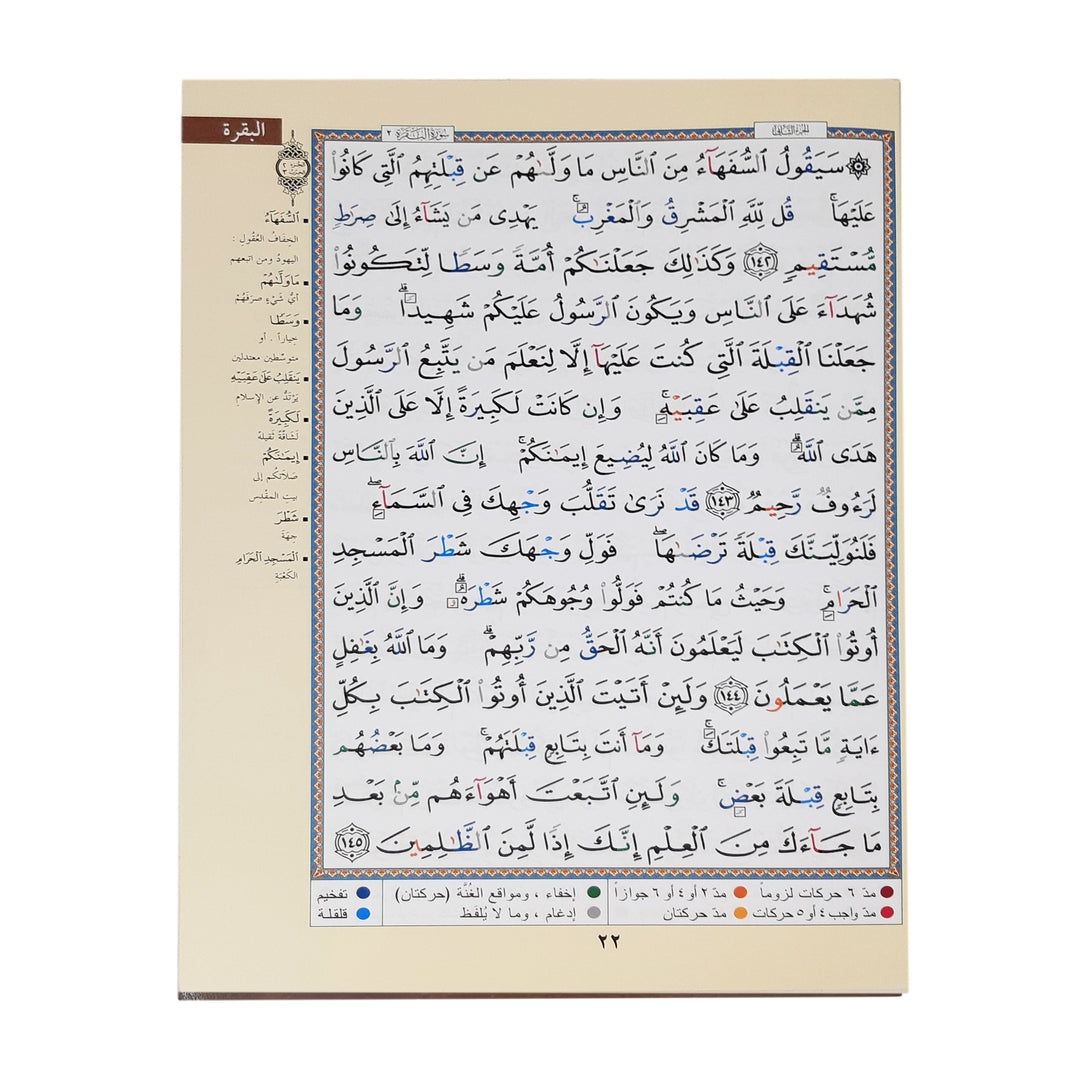 البقرة
سورة البقرة ٢
الجزء الثاني
سَيَقُولُ ٱلسُّفَهَآءُ مِنَ ٱلنَّاسِ مَا وَلَّىٰهُمْ عَن قِبْلَتِهِمُ ٱلَّتِى كَانُوا۟
عَلَيْهَا ۚ قُل لِّلَّهِ ٱلْمَشْرِقُ وَٱلْمَغْرِبُ ۚ يَهْدِى مَن يَشَآءُ إِلَىٰ صِرَٰطٍ
مُّسْتَقِيمٍ ١٤٢ وَكَذَٰلِكَ جَعَلْنَٰكُمْ أُمَّةً وَسَطًا لِّتَكُونُوا۟
شُهَدَآءَ عَلَى ٱلنَّاسِ وَيَكُونَ ٱلرَّسُولُ عَلَيْكُمْ شَهِيدًا ۗ وَمَا
جَعَلْنَا ٱلْقِبْلَةَ ٱلَّتِى كُنتَ عَلَيْهَآ إِلَّا لِنَعْلَمَ مَن يَتَّبِعُ ٱلرَّسُولَ
مِمَّن يَنقَلِبُ عَلَىٰ عَقِبَيْهِ ۚ وَإِن كَانَتْ لَكَبِيرَةً إِلَّا عَلَى ٱلَّذِينَ
هَدَى ٱللَّهُ ۗ وَمَا كَانَ ٱللَّهُ لِيُضِيعَ إِيمَٰنَكُمْ ۚ إِنَّ ٱللَّهَ بِٱلنَّاسِ
لَرَءُوفٌ رَّحِيمٌ ١٤٣ قَدْ نَرَىٰ تَقَلُّبَ وَجْهِكَ فِى ٱلسَّمَآءِ ۖ
فَلَنُوَلِّيَنَّكَ قِبْلَةً تَرْضَىٰهَا ۚ فَوَلِّ وَجْهَكَ شَطْرَ ٱلْمَسْجِدِ
ٱلْحَرَامِ ۚ وَحَيْثُ مَا كُنتُمْ فَوَلُّوا۟ وُجُوهَكُمْ شَطْرَهُۥ ۗ وَإِنَّ ٱلَّذِينَ
أُوتُوا۟ ٱلْكِتَٰبَ لَيَعْلَمُونَ أَنَّهُ ٱلْحَقُّ مِن رَّبِّهِمْ ۗ وَمَا ٱللَّهُ بِغَٰفِلٍ
عَمَّا يَعْمَلُونَ ١٤٤ وَلَئِنْ أَتَيْتَ ٱلَّذِينَ أُوتُوا۟ ٱلْكِتَٰبَ بِكُلِّ
ءَايَةٍ مَّا تَبِعُوا۟ قِبْلَتَكَ ۚ وَمَآ أَنتَ بِتَابِعٍ قِبْلَتَهُمْ ۚ وَمَا بَعْضُهُم
بِتَابِعٍ قِبْلَةَ بَعْضٍ ۚ وَلَئِنِ ٱتَّبَعْتَ أَهْوَآءَهُم مِّنۢ بَعْدِ
مَا جَآءَكَ مِنَ ٱلْعِلْمِ إِنَّكَ إِذًا لَّمِنَ ٱلظَّٰلِمِينَ ١٤٥
ٱلسُّفَهَآءُ
الخِفَافُ العُقُولِ :
اليهودُ ومن اتبعهم
مَا وَلَّىٰهُمْ
أيُّ شَيْءٍ صَرَفَهُمْ
وَسَطًا
خِياراً . أو
متوسِّطين معتدلين
يَنقَلِبُ عَلَىٰ عَقِبَيْهِ
يَرْتَدُّ عن الإسلامِ
لَكَبِيرَةً
لَشَاقَّةً ثقيلة
إِيمَٰنَكُمْ
صَلَاتَكُم إلى
بيتِ المقدِسِ
شَطْرَ
جِهَةَ
ٱلْمَسْجِدِ ٱلْحَرَامِ
الكَعْبَةِ
مدّ ٦ حركات لزوماً
مدّ ٢ أو ٤ أو ٦ جوازاً
إخفاء ، ومواقع الغُنَّة (حركتان)
تفخيم
مدّ واجب ٤ أو ٥ حركات
مدّ حركتان
إدغام ، وما لا يُلفَظ
قلقلة
٢٢